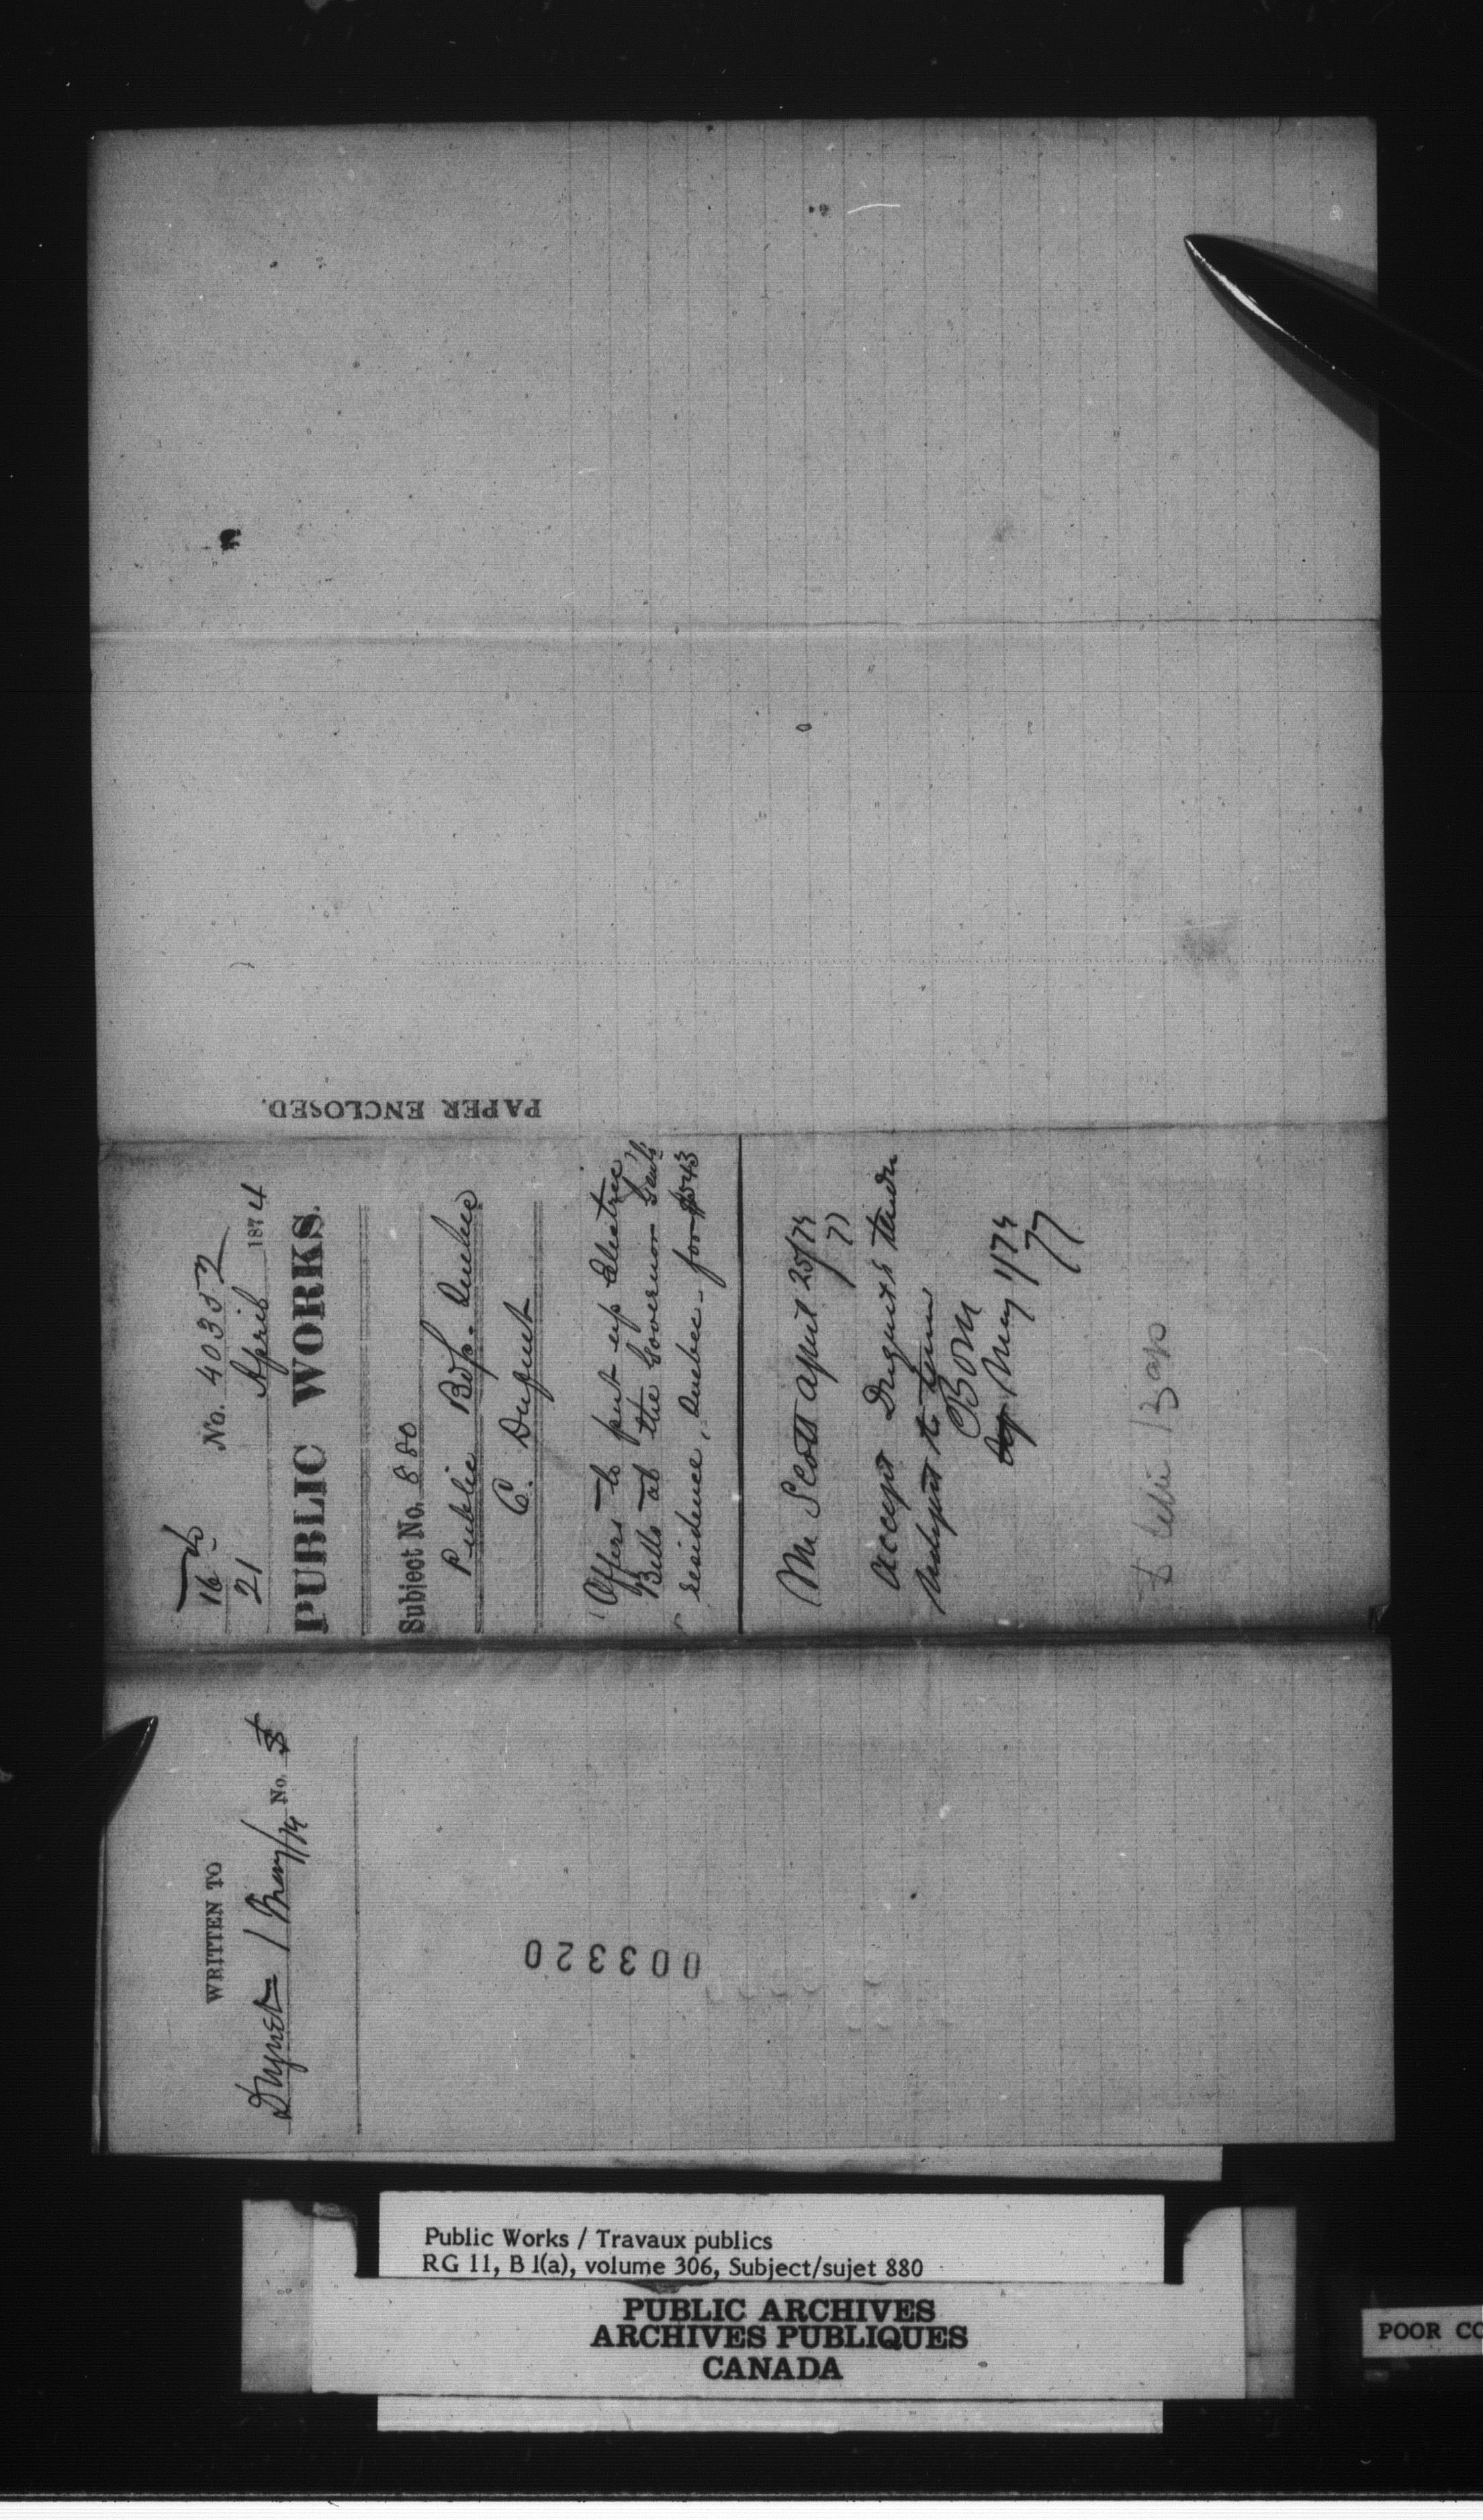 16th
21
No. 40352
April 1874
PUBLIC WORKS.
Subject No. 880
Public Bdgs. Quebec
C. Duquet
Offers to put up Electric
Bells at the Governor Genl's
residence, Quebec - for $543
Mr Scott April 25/74
77
Accept Duquets tender
May 1/74
77
PAPER ENCLOSED.
WRITTEN TO
Duquet 1 May/74 No.
003320
Public Works / Travaux publics
RG 11, B 1(a), volume 306, Subject/sujet 880
PUBLIC ARCHIVES
ARCHIVES PUBLIQUES
CANADA
POOR CO